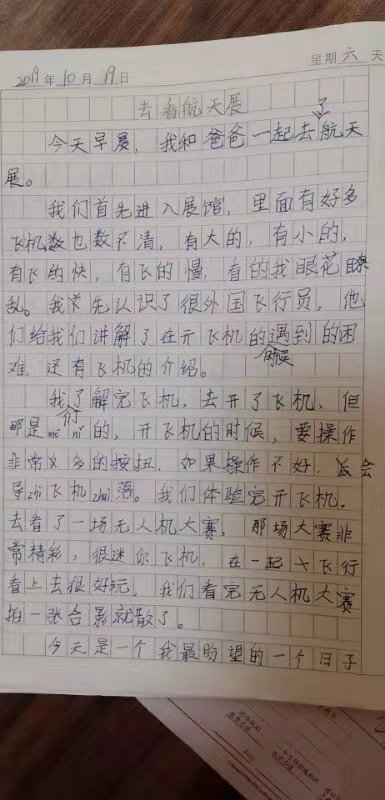 星期 六 天
2019年10月19日
去看航天展
了
今天早晨，我和爸爸一起去航天
展。
我们首先进入展馆，里面有好多
飞机数也数不清，有大的，有小的，
有飞的快，有飞的慢，看的我眼花
乱。我首先认识了很外国飞行员，他
们给我们讲解了在开飞机的遇到的困
时候
难，还有飞机的介绍。
我了解完飞机，去开了飞机，但
们
那是mó nǐ的，开飞机的时候，要操作
非常多的按扭，如果操作不好，会
导zhì飞机zhuì落。我们体验完开飞机，
去看了一场无人机大赛，那场大赛非
常精彩，很迷你飞机，在一起飞行
看上去很好玩，我们看完无人机大赛
拍一张合影就散了。
今天是一个我最盼望的一个日子